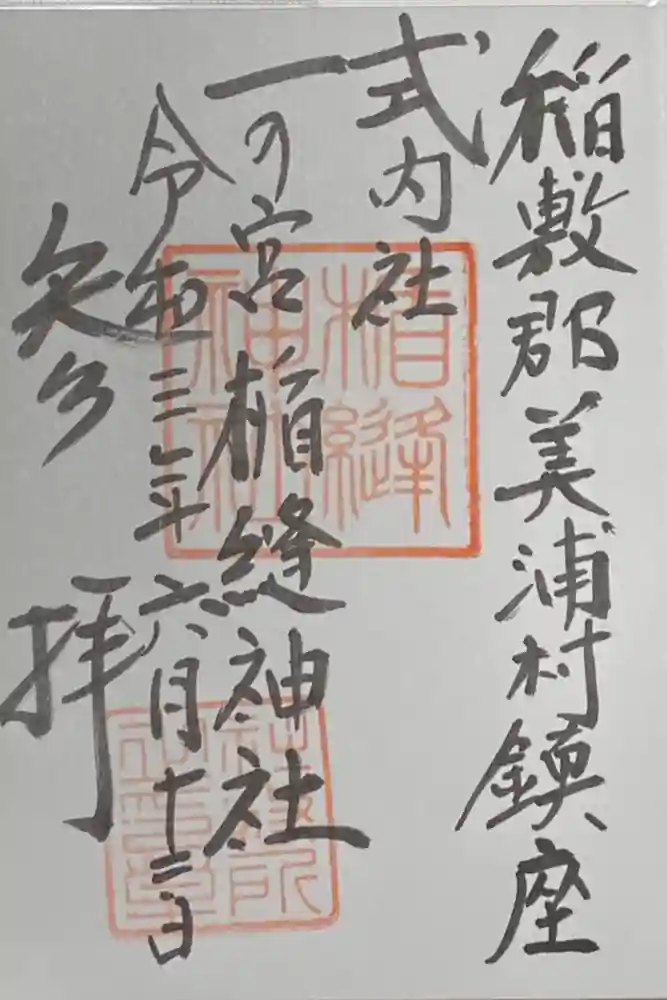 稲敷郡美浦村鎮座
式内社
一の宮楯縫神社
令和三年六月十三日
参拝
楯縫
神社